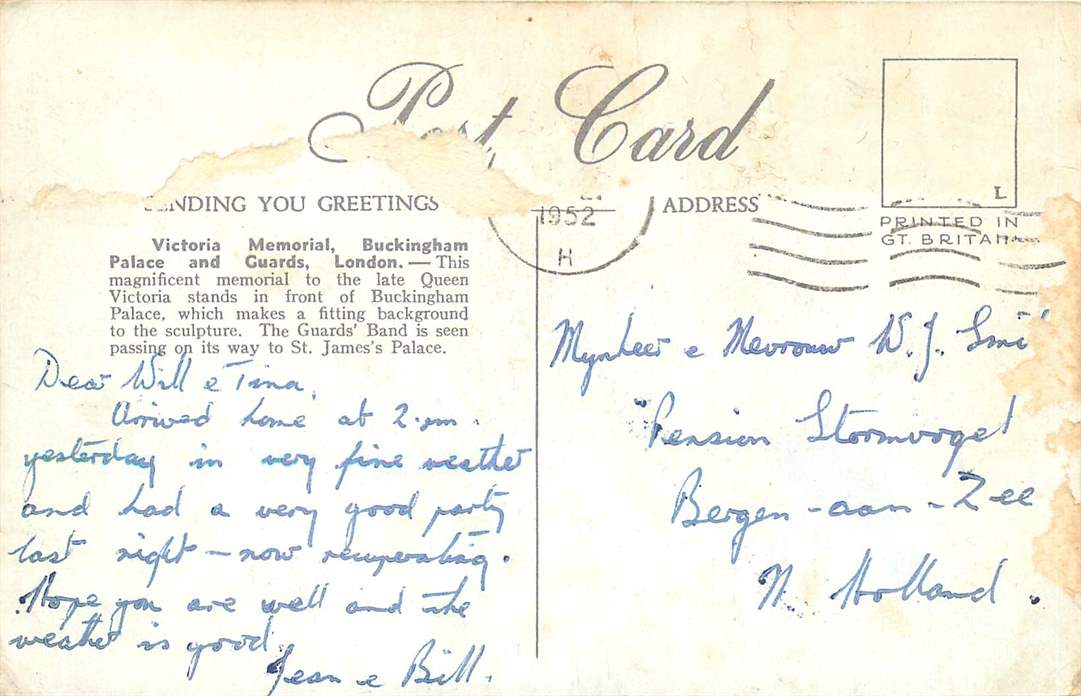 Post Card
SENDING YOU GREETINGS
ADDRESS
1952
H
L
PRINTED IN
GT. BRITAIN
Victoria Memorial, Buckingham
Palace and Guards, London. — This
magnificent memorial to the late Queen
Victoria stands in front of Buckingham
Palace, which makes a fitting background
to the sculpture. The Guards' Band is seen
passing on its way to St. James's Palace.
Dear Will e Tina,
Arrived home at 2.pm.
yesterday in very fine weather
and had a very good party
last night – now recuperating.
Hope you are well and the
weather is good.
Jean e Bill.
Mynheer e Mevrouw W. J.
"Pension Stormvogel
Bergen-aan-Zee
N. Holland.